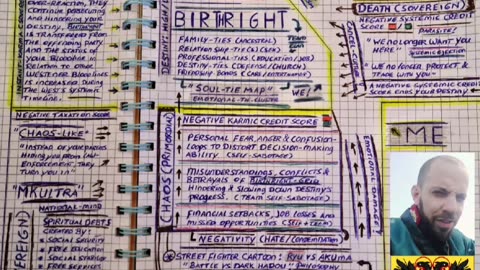 OVER-REACTION, THEY
CONTINUE PERSECUTING
AND HINDERING YOUR
DESTINY.
IS TRANSFERRED FROM
THE OFFENDING PARTY
AND THE STATUS OF
YOUR BLOODLINE IN
RELATION TO OTHER
WESTERN BLOODLINES
IS INCREASED DURING
THE WEST'S SYSTEMIC
TIMELINE.
NEGATIVE TAXATION SCORE
"CHAOS-LIKE"
"INSTEAD OF YOUR PARENTS
HIDING YOU FROM LAW-
ENFORCEMENT, THEY
TURN YOU IN."
"MKULTRA"
NATIONAL-MIND
SPIRITUAL DEBTS
CREATED BY:
SOCIAL SECURITY
FREE EDUCATION
SOCIAL SECURITY
FREE SERVICES
BIRTHRIGHT
FAMILY-TIES (ANCESTRAL)
RELATIONSHIP-TIES
PROFESSIONAL-TIES (EDUCATION/JOB)
DESTINY-TIES (DEFENSE/CHURCH)
FRIENDSHIP BONDS
"SOUL-TIE MAP"
EMOTIONAL
WE!
CHAOS (PRIMORDIAL)
NEGATIVE KARMIC CREDIT SCORE
PERSONAL FEAR, ANGER & CONFUSION-
LOOPS TO DISTORT DECISION-MAKING
ABILITY. (SELF-SABOTAGE)
MISUNDERSTANDINGS, CONFLICTS &
BETRAYALS OF
HINDERING & SLOWING DOWN DESTINY'S
PROGRESS. (TEAM SELF-SABOTAGE)
FINANCIAL SETBACKS, JOB LOSSES AND
MISSED OPPORTUNITIES (SELF + TEAM)
NEGATIVITY (HATE/CONDEMNATION)
STREET FIGHTER CARTOON: RYU VS AKUMA
"BATTLE VS DARK HADOU" PHILOSOPHY
EMOTIONAL DAMAGE
DEATH (SOVEREIGN)
NEGATIVE SYSTEMIC CREDIT
SCORE
PARASITE!
"WE NO LONGER WANT YOU
HERE"
"WE NO LONGER PROTECT &
TRADE WITH YOU"
A NEGATIVE SYSTEMIC CREDIT
SCORE ENDS YOUR DESTINY.
ME